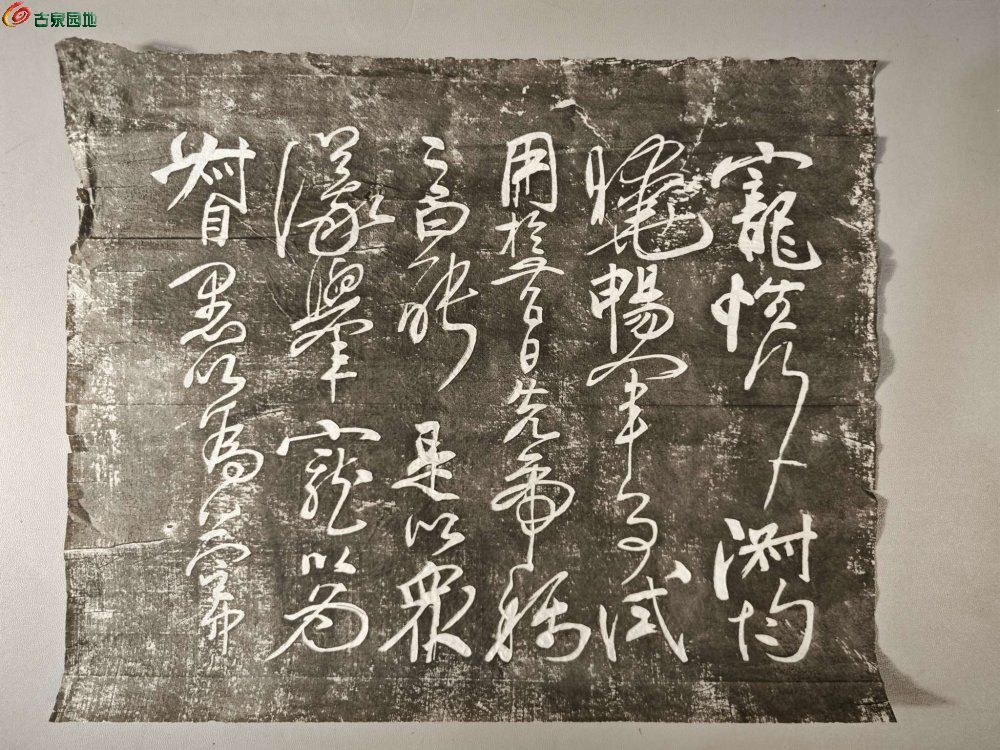 古泉园地
寵性行淑均
曉暢軍事試
用於昔日先帝稱
之曰能是以衆
議舉寵以為
督愚以為營中